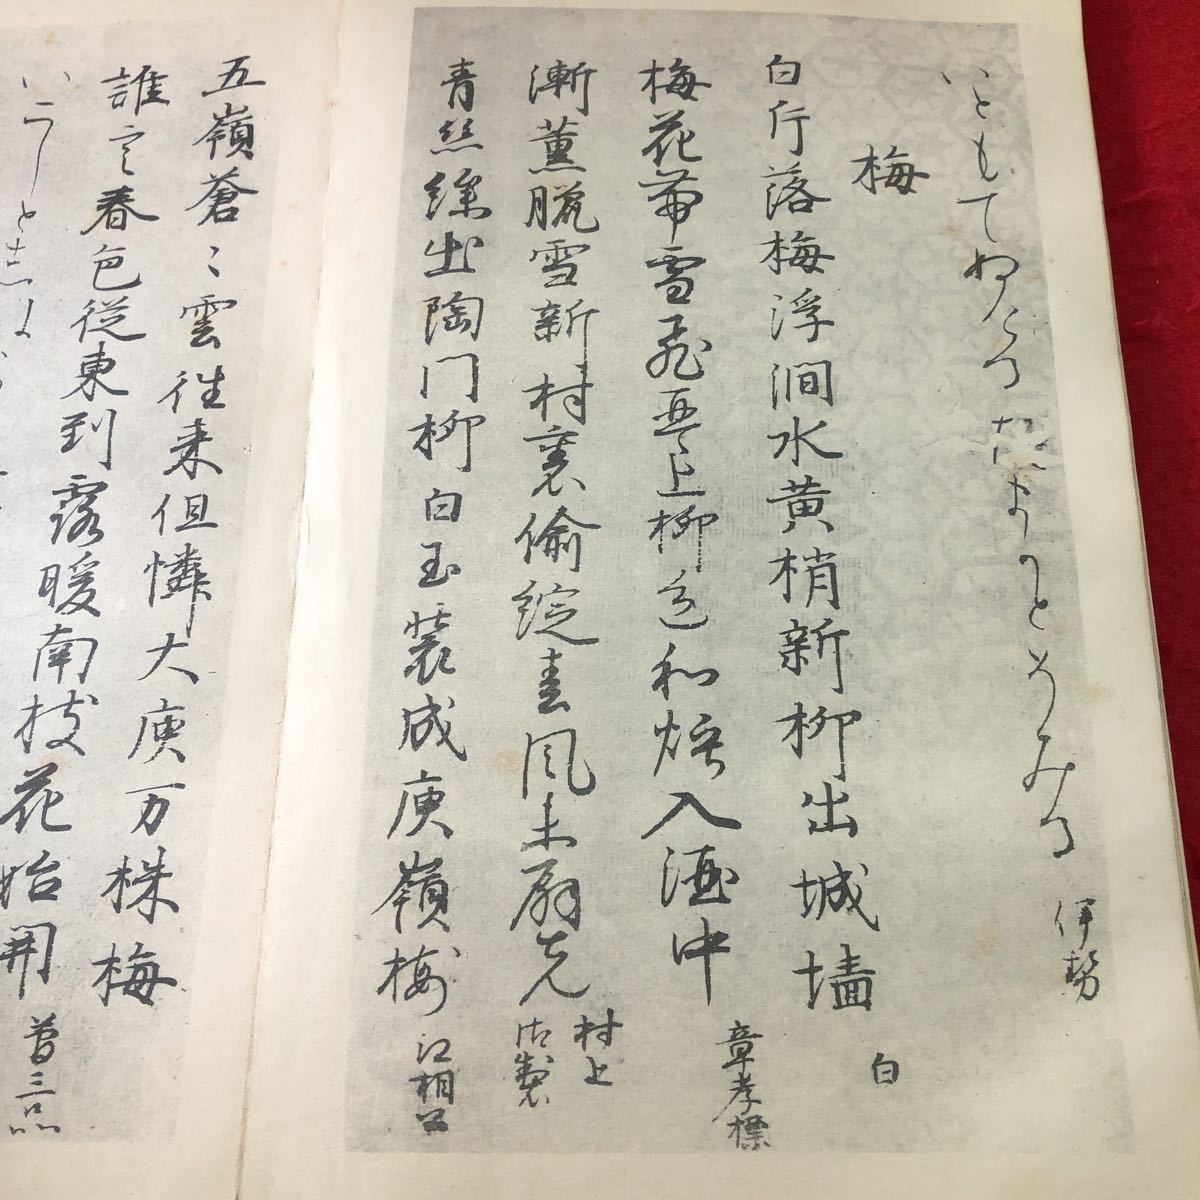 いともてぬけるたまかとそみる 伊勢
梅
白片落梅浮澗水黄梢新柳出城墻 白
梅花帯雪飛琴上柳色和煙入酒中 章孝標
漸薫臘雪新封裏偸綻春風未扇先 村上御製
青絲繰出陶門柳白玉装成庾嶺梅 江相公
五嶺蒼々雲往来但憐大庾万株梅
誰言春色従東到露暖南枝花始開 菅三品